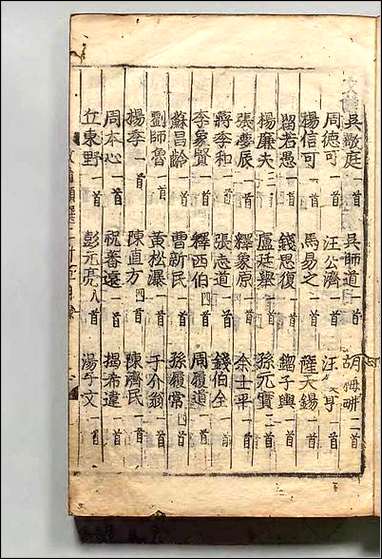 吳敬庭一首 吳師道一首 胡海𬀩二首
周德可一首 汪公濟一首 汪 亨一首
楊信可一首 馬易之一首 薩天錫一首
留若愚一首 錢思復一首 鎦子輿一首
楊廉夫二首 盧廷舉一首 孫元實二首
張夢辰一首 釋象原一首 余士平一首
蔣季和一首 張志道一首 錢伯全一首
李象賢一首 釋西伯四首 周履道一首
蘇昌齡一首 曹新民一首 孫履常四首
劉師魯一首 黃松瀑一首 于介翁一首
楊季一首 陳直方四首 陳濟民一首
周本心一首 祝蕃遠一首 揭希違一首
丘東野一首 彭元亮八首 湯 文一首